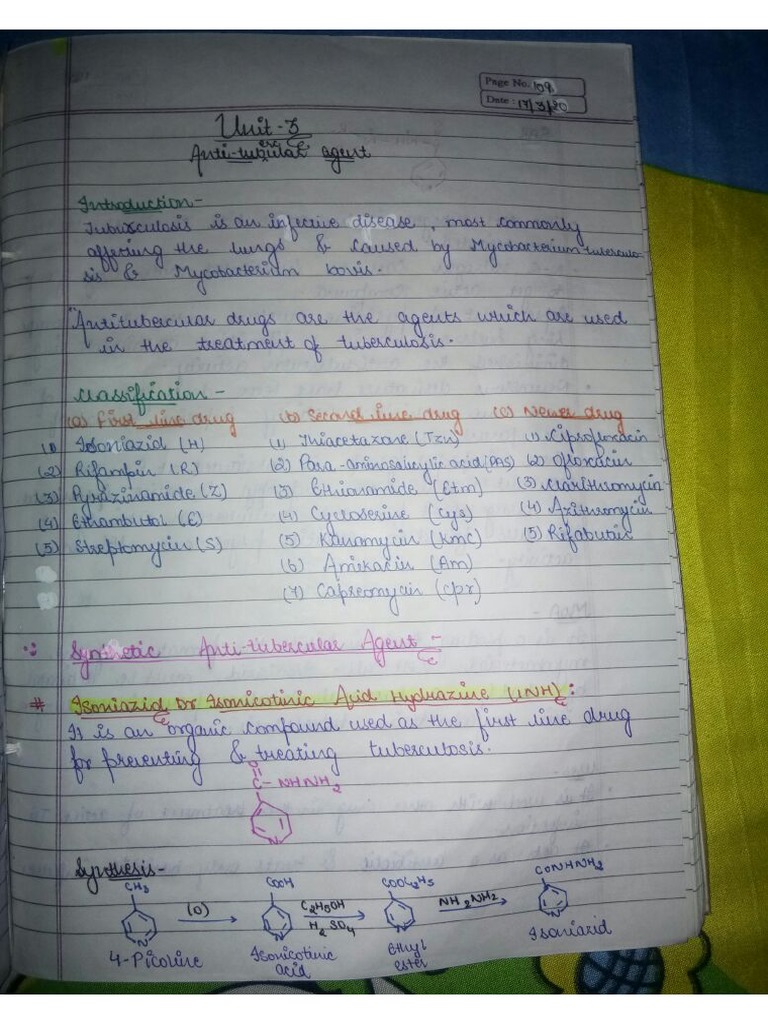 Page No. 109
Date: 17/3/20
Unit-3
Anti-tubercular agent
Introduction-
Tuburculosis is an infective disease, most commonly
affering the lungs & caused by Mycobacterium tuberculo-
sis & Mycobacterium bovis.
"Antitubercular drugs are the agents which are used
in the treatment of tuberculosis.
Classification-
(a) First line drug (b) Second line drug (c) Newer drug
(1) Isoniazid (H) (1) Thiacetazone (Tzn) (1) Ciprofloxacin
(2) Rifampin (R) (2) Para-aminosalicylic acid (PAS) (2) Ofloxacin
(3) Pyrazinamide (Z) (3) Ethionamide (Etm) (3) Clarithromycin
(4) Ethambutol (E) (4) Cycloserine (Cys) (4) Azithromycin
(5) Streptomycin (S) (5) Kanamycin (Kmc) (5) Rifabutin
(6) Amikacin (Am)
(7) Capreomycin (cpr)
Synthetic Anti-tubercular Agent-
# Isoniazid Or Isonicotinic Acid Hydrazine (INH):
It is an organic compound used as the first line drug
for preventing & treating tuberculosis.
O
C-NHNH2
N
Synthesis-
CH3 COOH COOC2H5 CONHNH2
(O) C2H5OH NH2NH2
H2SO4
N N N N
4-Picoline Isonicotinic acid Ethyl ester Isoniazid